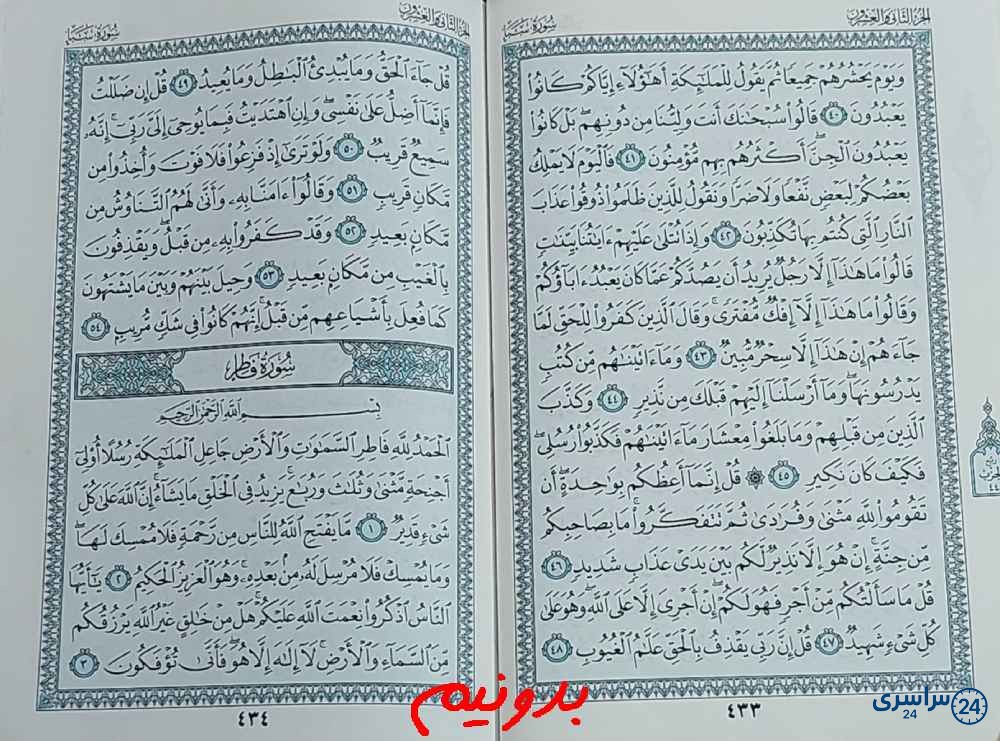 الجزء الثاني والعشرون
سورة سبإ
وَيَوْمَ يَحْشُرُهُمْ جَمِيعًا ثُمَّ يَقُولُ لِلْمَلَٰٓئِكَةِ أَهَٰٓؤُلَآءِ إِيَّاكُمْ كَانُوا۟
يَعْبُدُونَ ٤٠ قَالُوا۟ سُبْحَٰنَكَ أَنتَ وَلِيُّنَا مِن دُونِهِم ۖ بَلْ كَانُوا۟
يَعْبُدُونَ ٱلْجِنَّ ۖ أَكْثَرُهُم بِهِم مُّؤْمِنُونَ ٤١ فَٱلْيَوْمَ لَا يَمْلِكُ
بَعْضُكُمْ لِبَعْضٍ نَّفْعًا وَلَا ضَرًّا وَنَقُولُ لِلَّذِينَ ظَلَمُوا۟ ذُوقُوا۟ عَذَابَ
ٱلنَّارِ ٱلَّتِى كُنتُم بِهَا تُكَذِّبُونَ ٤٢ وَإِذَا تُتْلَىٰ عَلَيْهِمْ ءَايَٰتُنَا بَيِّنَٰتٍ
قَالُوا۟ مَا هَٰذَآ إِلَّا رَجُلٌ يُرِيدُ أَن يَصُدَّكُمْ عَمَّا كَانَ يَعْبُدُ ءَابَآؤُكُمْ
وَقَالُوا۟ مَا هَٰذَآ إِلَّآ إِفْكٌ مُّفْتَرًى ۚ وَقَالَ ٱلَّذِينَ كَفَرُوا۟ لِلْحَقِّ لَمَّا
جَآءَهُمْ إِنْ هَٰذَآ إِلَّا سِحْرٌ مُّبِينٌ ٤٣ وَمَآ ءَاتَيْنَٰهُم مِّن كُتُبٍ
يَدْرُسُونَهَا ۖ وَمَآ أَرْسَلْنَآ إِلَيْهِمْ قَبْلَكَ مِن نَّذِيرٍ ٤٤ وَكَذَّبَ
ٱلَّذِينَ مِن قَبْلِهِمْ وَمَا بَلَغُوا۟ مِعْشَارَ مَآ ءَاتَيْنَٰهُمْ فَكَذَّبُوا۟ رُسُلِى ۖ
فَكَيْفَ كَانَ نَكِيرِ ٤٥ ۞ قُلْ إِنَّمَآ أَعِظُكُم بِوَٰحِدَةٍ ۖ أَن
تَقُومُوا۟ لِلَّهِ مَثْنَىٰ وَفُرَٰدَىٰ ثُمَّ تَتَفَكَّرُوا۟ ۚ مَا بِصَاحِبِكُم
مِّن جِنَّةٍ ۚ إِنْ هُوَ إِلَّا نَذِيرٌ لَّكُم بَيْنَ يَدَىْ عَذَابٍ شَدِيدٍ ٤٦
قُلْ مَا سَأَلْتُكُم مِّنْ أَجْرٍ فَهُوَ لَكُمْ ۖ إِنْ أَجْرِىَ إِلَّا عَلَى ٱللَّهِ ۖ وَهُوَ عَلَىٰ
كُلِّ شَىْءٍ شَهِيدٌ ٤٧ قُلْ إِنَّ رَبِّى يَقْذِفُ بِٱلْحَقِّ عَلَّٰمُ ٱلْغُيُوبِ ٤٨
٤٣٣
الجزء الثاني والعشرون
سورة سبإ
قُلْ جَآءَ ٱلْحَقُّ وَمَا يُبْدِئُ ٱلْبَٰطِلُ وَمَا يُعِيدُ ٤٩ قُلْ إِن ضَلَلْتُ
فَإِنَّمَآ أَضِلُّ عَلَىٰ نَفْسِى ۖ وَإِنِ ٱهْتَدَيْتُ فَبِمَا يُوحِىٓ إِلَىَّ رَبِّىٓ ۚ إِنَّهُۥ
سَمِيعٌ قَرِيبٌ ٥٠ وَلَوْ تَرَىٰٓ إِذْ فَزِعُوا۟ فَلَا فَوْتَ وَأُخِذُوا۟ مِن
مَّكَانٍ قَرِيبٍ ٥١ وَقَالُوٓا۟ ءَامَنَّا بِهِۦ وَأَنَّىٰ لَهُمُ ٱلتَّنَاوُشُ مِن
مَّكَانٍۭ بَعِيدٍ ٥٢ وَقَدْ كَفَرُوا۟ بِهِۦ مِن قَبْلُ ۖ وَيَقْذِفُونَ
بِٱلْغَيْبِ مِن مَّكَانٍۭ بَعِيدٍ ٥٣ وَحِيلَ بَيْنَهُمْ وَبَيْنَ مَا يَشْتَهُونَ
كَمَا فُعِلَ بِأَشْيَاعِهِم مِّن قَبْلُ ۚ إِنَّهُمْ كَانُوا۟ فِى شَكٍّ مُّرِيبٍۭ ٥٤
سُورَةُ فَاطِرٍ
بِسْمِ ٱللَّهِ ٱلرَّحْمَٰنِ ٱلرَّحِيمِ
ٱلْحَمْدُ لِلَّهِ فَاطِرِ ٱلسَّمَٰوَٰتِ وَٱلْأَرْضِ جَاعِلِ ٱلْمَلَٰٓئِكَةِ رُسُلًا أُو۟لِىٓ
أَجْنِحَةٍ مَّثْنَىٰ وَثُلَٰثَ وَرُبَٰعَ ۚ يَزِيدُ فِى ٱلْخَلْقِ مَا يَشَآءُ ۚ إِنَّ ٱللَّهَ عَلَىٰ كُلِّ
شَىْءٍ قَدِيرٌ ١ مَّا يَفْتَحِ ٱللَّهُ لِلنَّاسِ مِن رَّحْمَةٍ فَلَا مُمْسِكَ لَهَا ۖ
وَمَا يُمْسِكْ فَلَا مُرْسِلَ لَهُۥ مِنۢ بَعْدِهِۦ ۚ وَهُوَ ٱلْعَزِيزُ ٱلْحَكِيمُ ٢ يَٰٓأَيُّهَا
ٱلنَّاسُ ٱذْكُرُوا۟ نِعْمَتَ ٱللَّهِ عَلَيْكُمْ ۚ هَلْ مِنْ خَٰلِقٍ غَيْرُ ٱللَّهِ يَرْزُقُكُم
مِّنَ ٱلسَّمَآءِ وَٱلْأَرْضِ ۚ لَآ إِلَٰهَ إِلَّا هُوَ ۖ فَأَنَّىٰ تُؤْفَكُونَ ٣
٤٣٤
بدونیم
سراسری 24
24